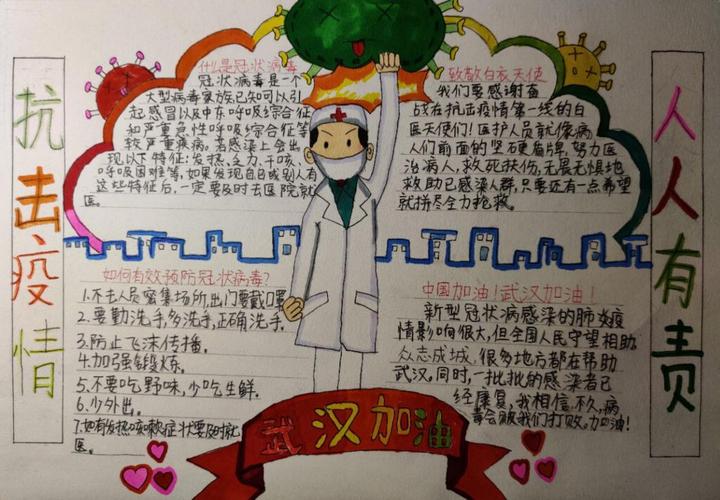 抗击疫情
什么是冠状病毒
冠状病毒是一个
大型病毒家族,已知可以引
起感冒以及中东呼吸综合征
和严重急性呼吸综合征等
较严重疾病。若感染上会出
现以下特征:发热、乏力、干咳、
呼吸困难等,如果发现自己或别人有
这些特征后,一定要及时去医院就
医。
致敬白衣天使
我们要感谢奋
战在抗击疫情第一线的白
医天使们!医护人员就像病
人们前面的坚硬盾牌,努力医
治病人,救死扶伤,无畏无惧地
救助已感染人群,只要还有一点希望
就拼尽全力抢救。
人人有责
如何有效预防冠状病毒?
1.不去人员密集场所,出门要戴口罩
2.要勤洗手,多洗手,正确洗手.
3.防止飞沫传播.
4.加强锻炼.
5.不要吃野味,少吃生鲜.
6.少外出.
7.如有发热咳嗽症状要及时就
医。
中国加油!武汉加油!
新型冠状病感染的肺炎疫
情影响很大,但全国人民守望相助,
众志成城,很多地方都在帮助
武汉,同时,一批批的感染者已
经康复,我相信,不久,病
毒会被我们打败。加油!
武汉加油